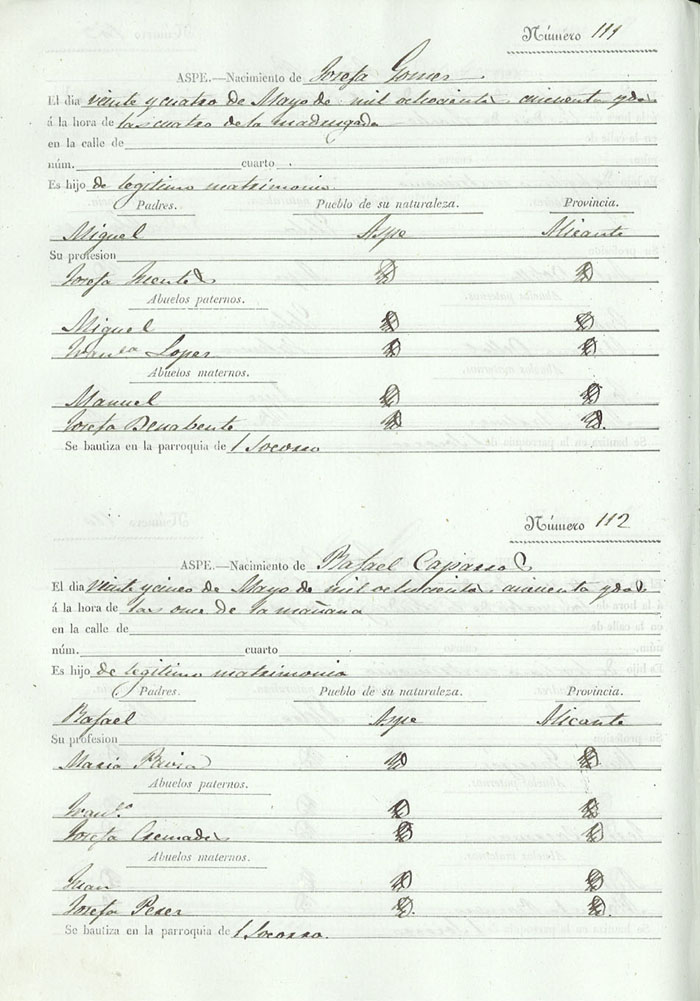 Número 111
ASPE.—Nacimiento de Josefa Gomes
El dia veinte y cuatro de Mayo de mil ochocientos cincuenta y dos
á la hora de las cuatro de la madrugada
en la calle de
núm. cuarto
Es hijo de legitimo matrimonio
Padres. Pueblo de su naturaleza. Provincia.
Miguel Aspe Alicante
Su profesion
Josefa
Abuelos paternos.
Miguel
Lopes
Abuelos maternos.
Manuel
Josefa Benabente
Se bautiza en la parroquia de l Socorro
Número 112
ASPE.—Nacimiento de Rafael
El dia veinte y cinco de Mayo de mil ochocientos cincuenta y dos
á la hora de las once de la mañana
en la calle de
núm. cuarto
Es hijo de legitimo matrimonio
Padres. Pueblo de su naturaleza. Provincia.
Rafael Aspe Alicante
Su profesion
Maria
Abuelos paternos.
Josefa
Abuelos maternos.
Juan
Josefa Peres
Se bautiza en la parroquia de l Socorro.